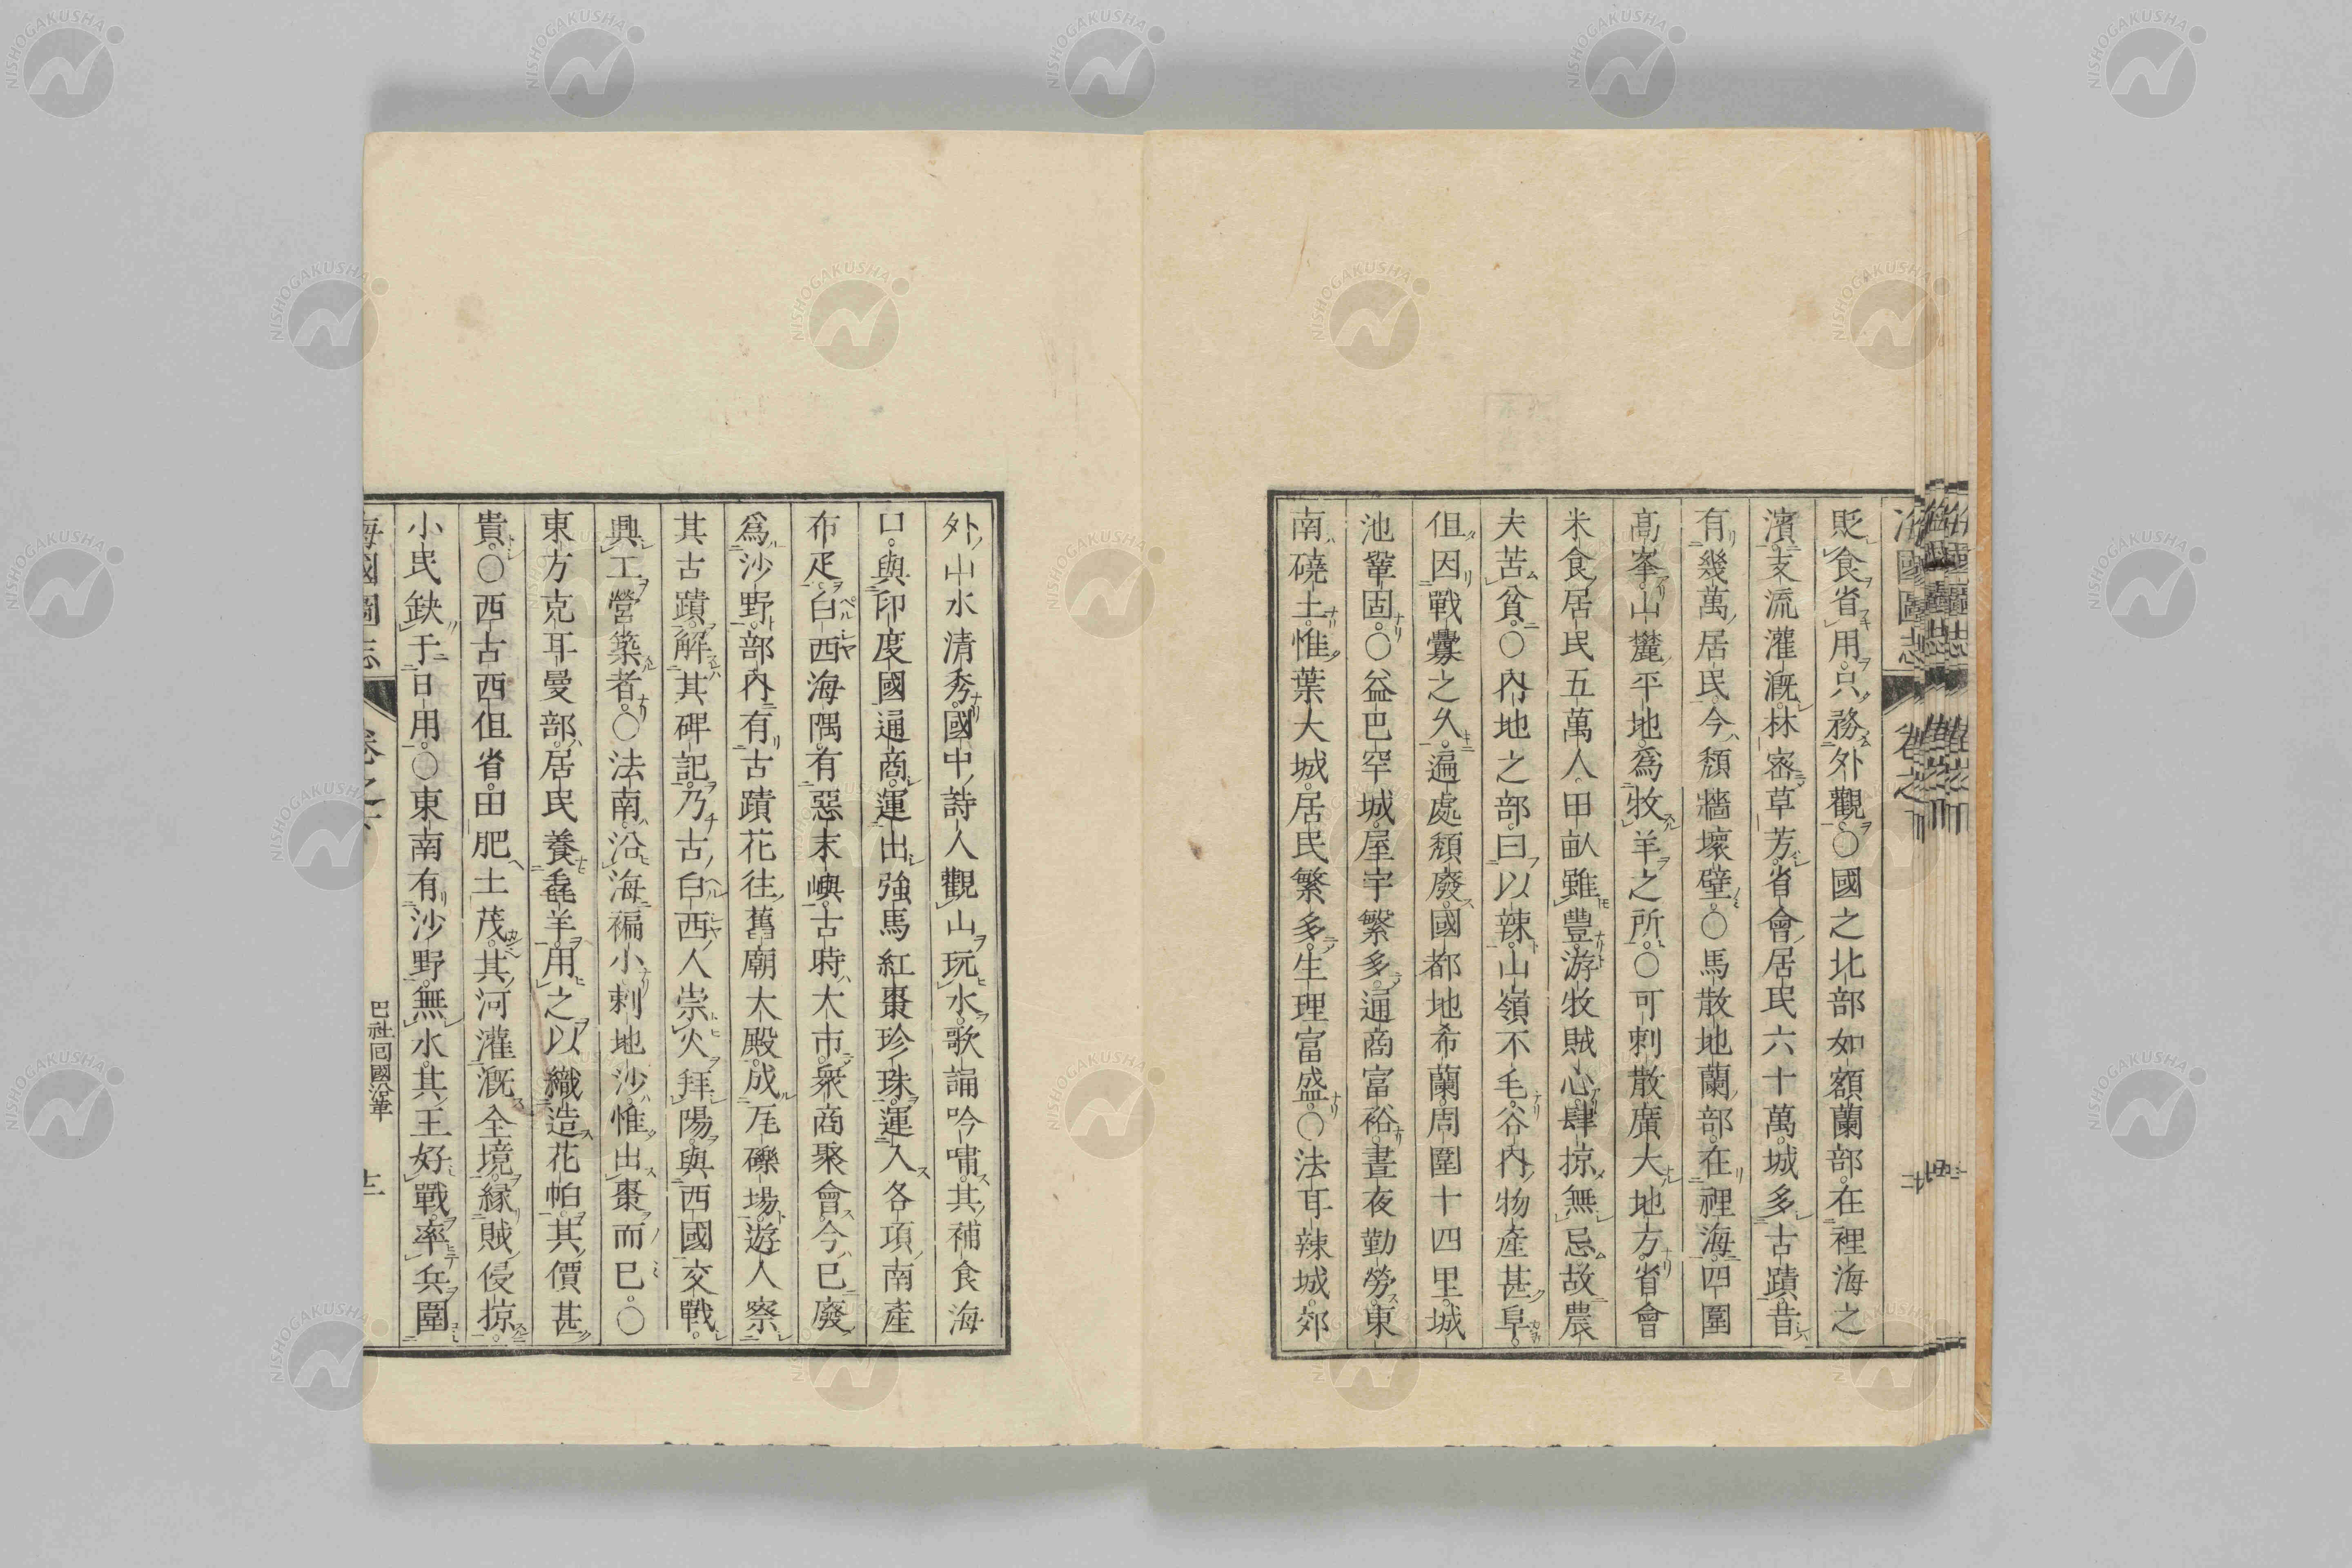 貶食省用只務外觀○國之北部如額蘭部在裡海之
濱支流灌溉林密草芳省會居民六十萬城多古蹟昔
有幾萬居民今頹牆壞壁○馬散地蘭部在裡海四圍
高峯山麓平地爲牧羊之所○可剌散廣大地方省會
米食居民五萬人田畝雖豐游牧賊心肆掠無忌故農
夫苦貧○內地之部曰以辣山嶺不毛谷內物產甚阜
但因戰釁之久遍處頹廢國都地希蘭周圍十四里城
池鞏固○益巴罕城屋宇繁多通商富裕晝夜勤勞東
南磽土惟葉大城居民繁多生理富盛○法耳辣城郊
外山水清秀國中詩人觀山玩水歌誦吟嘯其補食海
口與印度國通商運出強馬紅棗珍珠運入各項南產
布疋白西海隅有惡末嶼古時大市衆商聚會今已廢
爲沙野部內有古蹟花往舊廟大殿成瓦礫場遊人察
其古蹟解其碑記乃古白西人崇火拜陽與西國交戰
興工營築者○法南沿海褊小剌地沙惟出棗而已○
東方克耳曼部居民養毳羊用之以織造花帕其價甚
貴○西古西但省田肥土茂其河灌溉全境緣賊侵掠
小民缺于日用○東南有沙野無水其王好戰率兵圍
海國圖志
巴社回國沿革